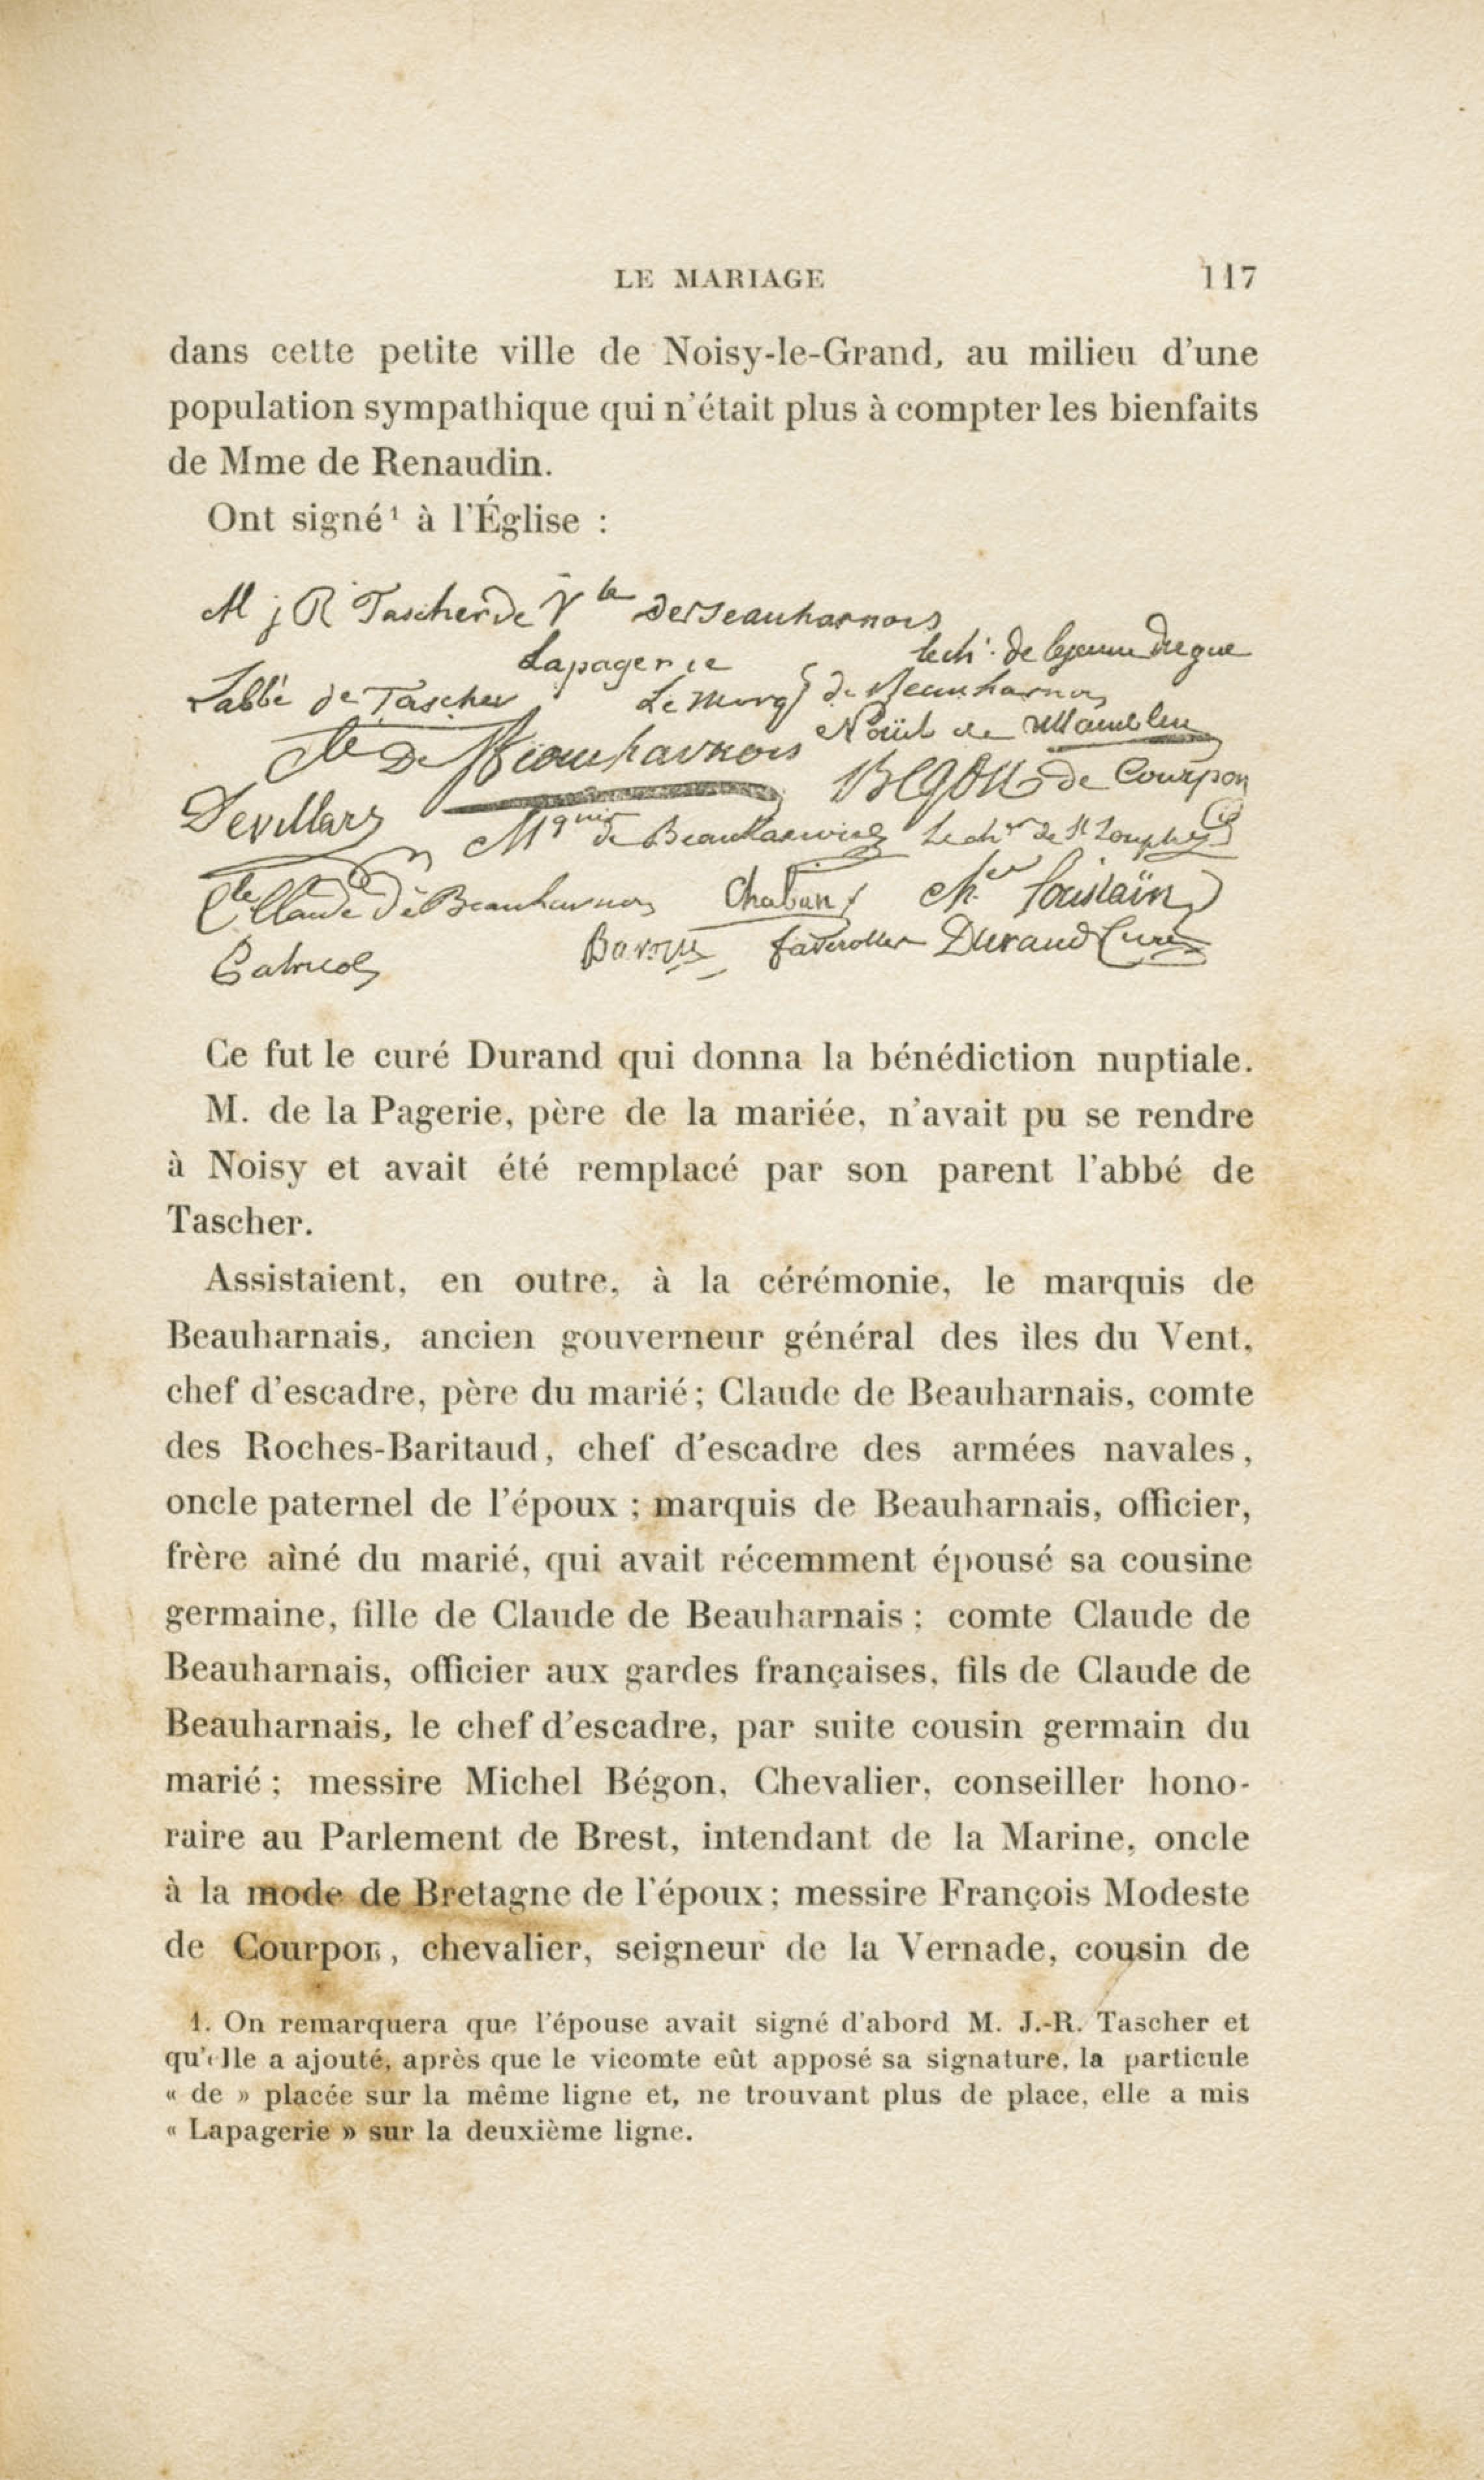 LE MARIAGE 117
dans cette petite ville de Noisy-le-Grand, au milieu d'une
population sympathique qui n'était plus à compter les bienfaits
de Mme de Renaudin.
Ont signé¹ à l'Église :
M j R Tascher de Vte De Beauharnois
Lapagerie
L'abbé de Tascher Le Marqs de Beauharnois
Cte De Beauharnois
Begon de Courpon
Devillars
Mquis de Beauharnois Le chr de St
Cte Claude De Beauharnois Chaban
faverolles Durand Curé
Ce fut le curé Durand qui donna la bénédiction nuptiale.
M. de la Pagerie, père de la mariée, n'avait pu se rendre
à Noisy et avait été remplacé par son parent l'abbé de
Tascher.
Assistaient, en outre, à la cérémonie, le marquis de
Beauharnais, ancien gouverneur général des iles du Vent,
chef d'escadre, père du marié ; Claude de Beauharnais, comte
des Roches-Baritaud, chef d'escadre des armées navales,
oncle paternel de l'époux ; marquis de Beauharnais, officier,
frère aîné du marié, qui avait récemment épousé sa cousine
germaine, fille de Claude de Beauharnais ; comte Claude de
Beauharnais, officier aux gardes françaises, fils de Claude de
Beauharnais, le chef d'escadre, par suite cousin germain du
marié ; messire Michel Bégon, Chevalier, conseiller hono-
raire au Parlement de Brest, intendant de la Marine, oncle
à la mode de Bretagne de l'époux ; messire François Modeste
de Courpon, chevalier, seigneur de la Vernade, cousin de
1. On remarquera que l'épouse avait signé d'abord M. J.-R. Tascher et
qu'elle a ajouté, après que le vicomte eût apposé sa signature, la particule
« de » placée sur la même ligne et, ne trouvant plus de place, elle a mis
« Lapagerie » sur la deuxième ligne.